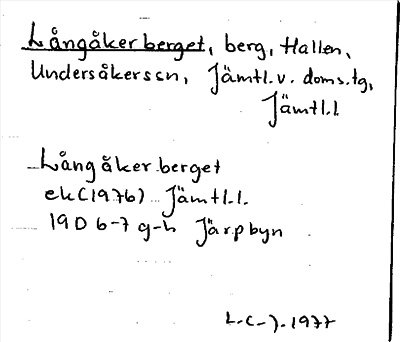 Långåkerberget, berg, Hallen,
Undersåkerssn, Jämtl.v. doms.tg,
Jämtl.l
Långåkerberget
ek(1976) Jämtl.l.
19D 6-7 g-h Järpbyn
L.C-J.1977